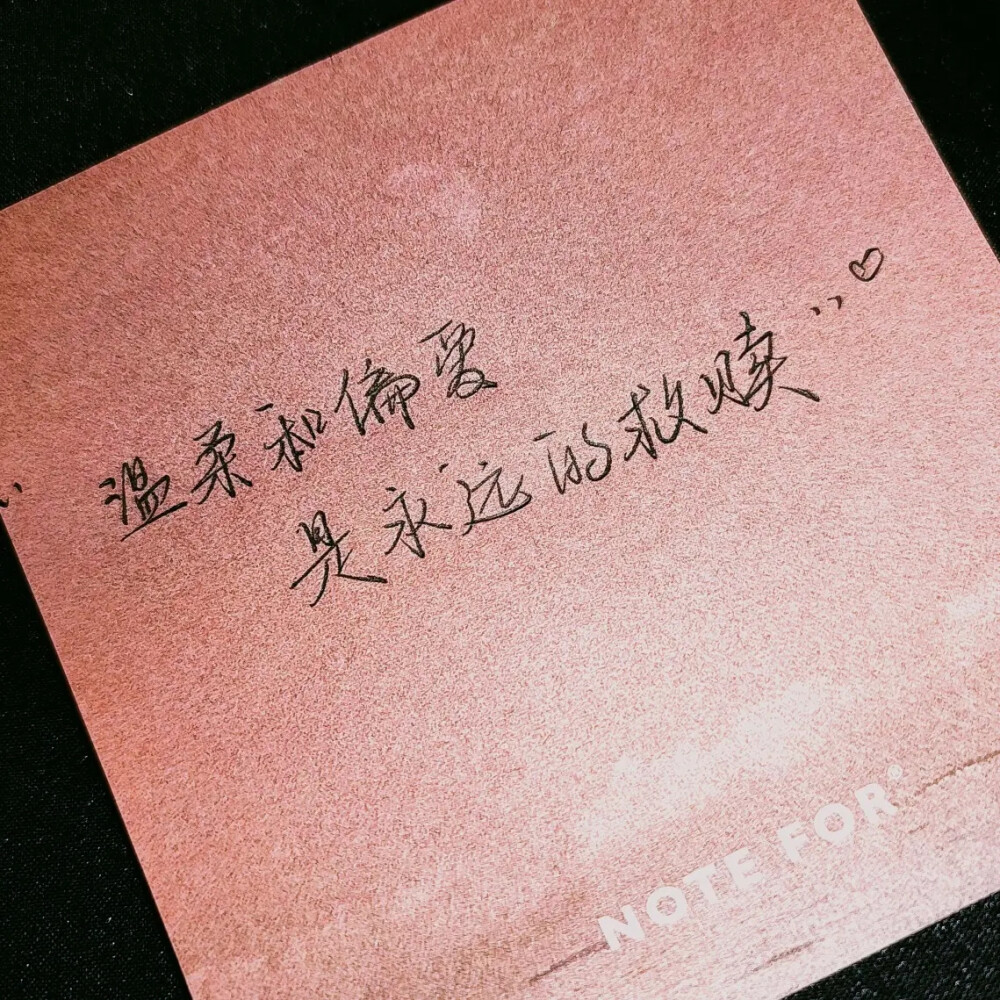 温柔和偏爱
是永远的救赎
NOTE FOR